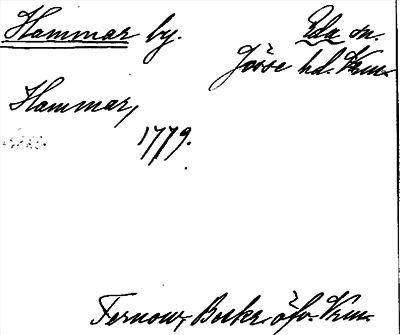 Hammar by. Eda sn.
Jösse hd. Vrm.
Hammar,
1779.
Fernow, Beskr. öfv. Vrm.